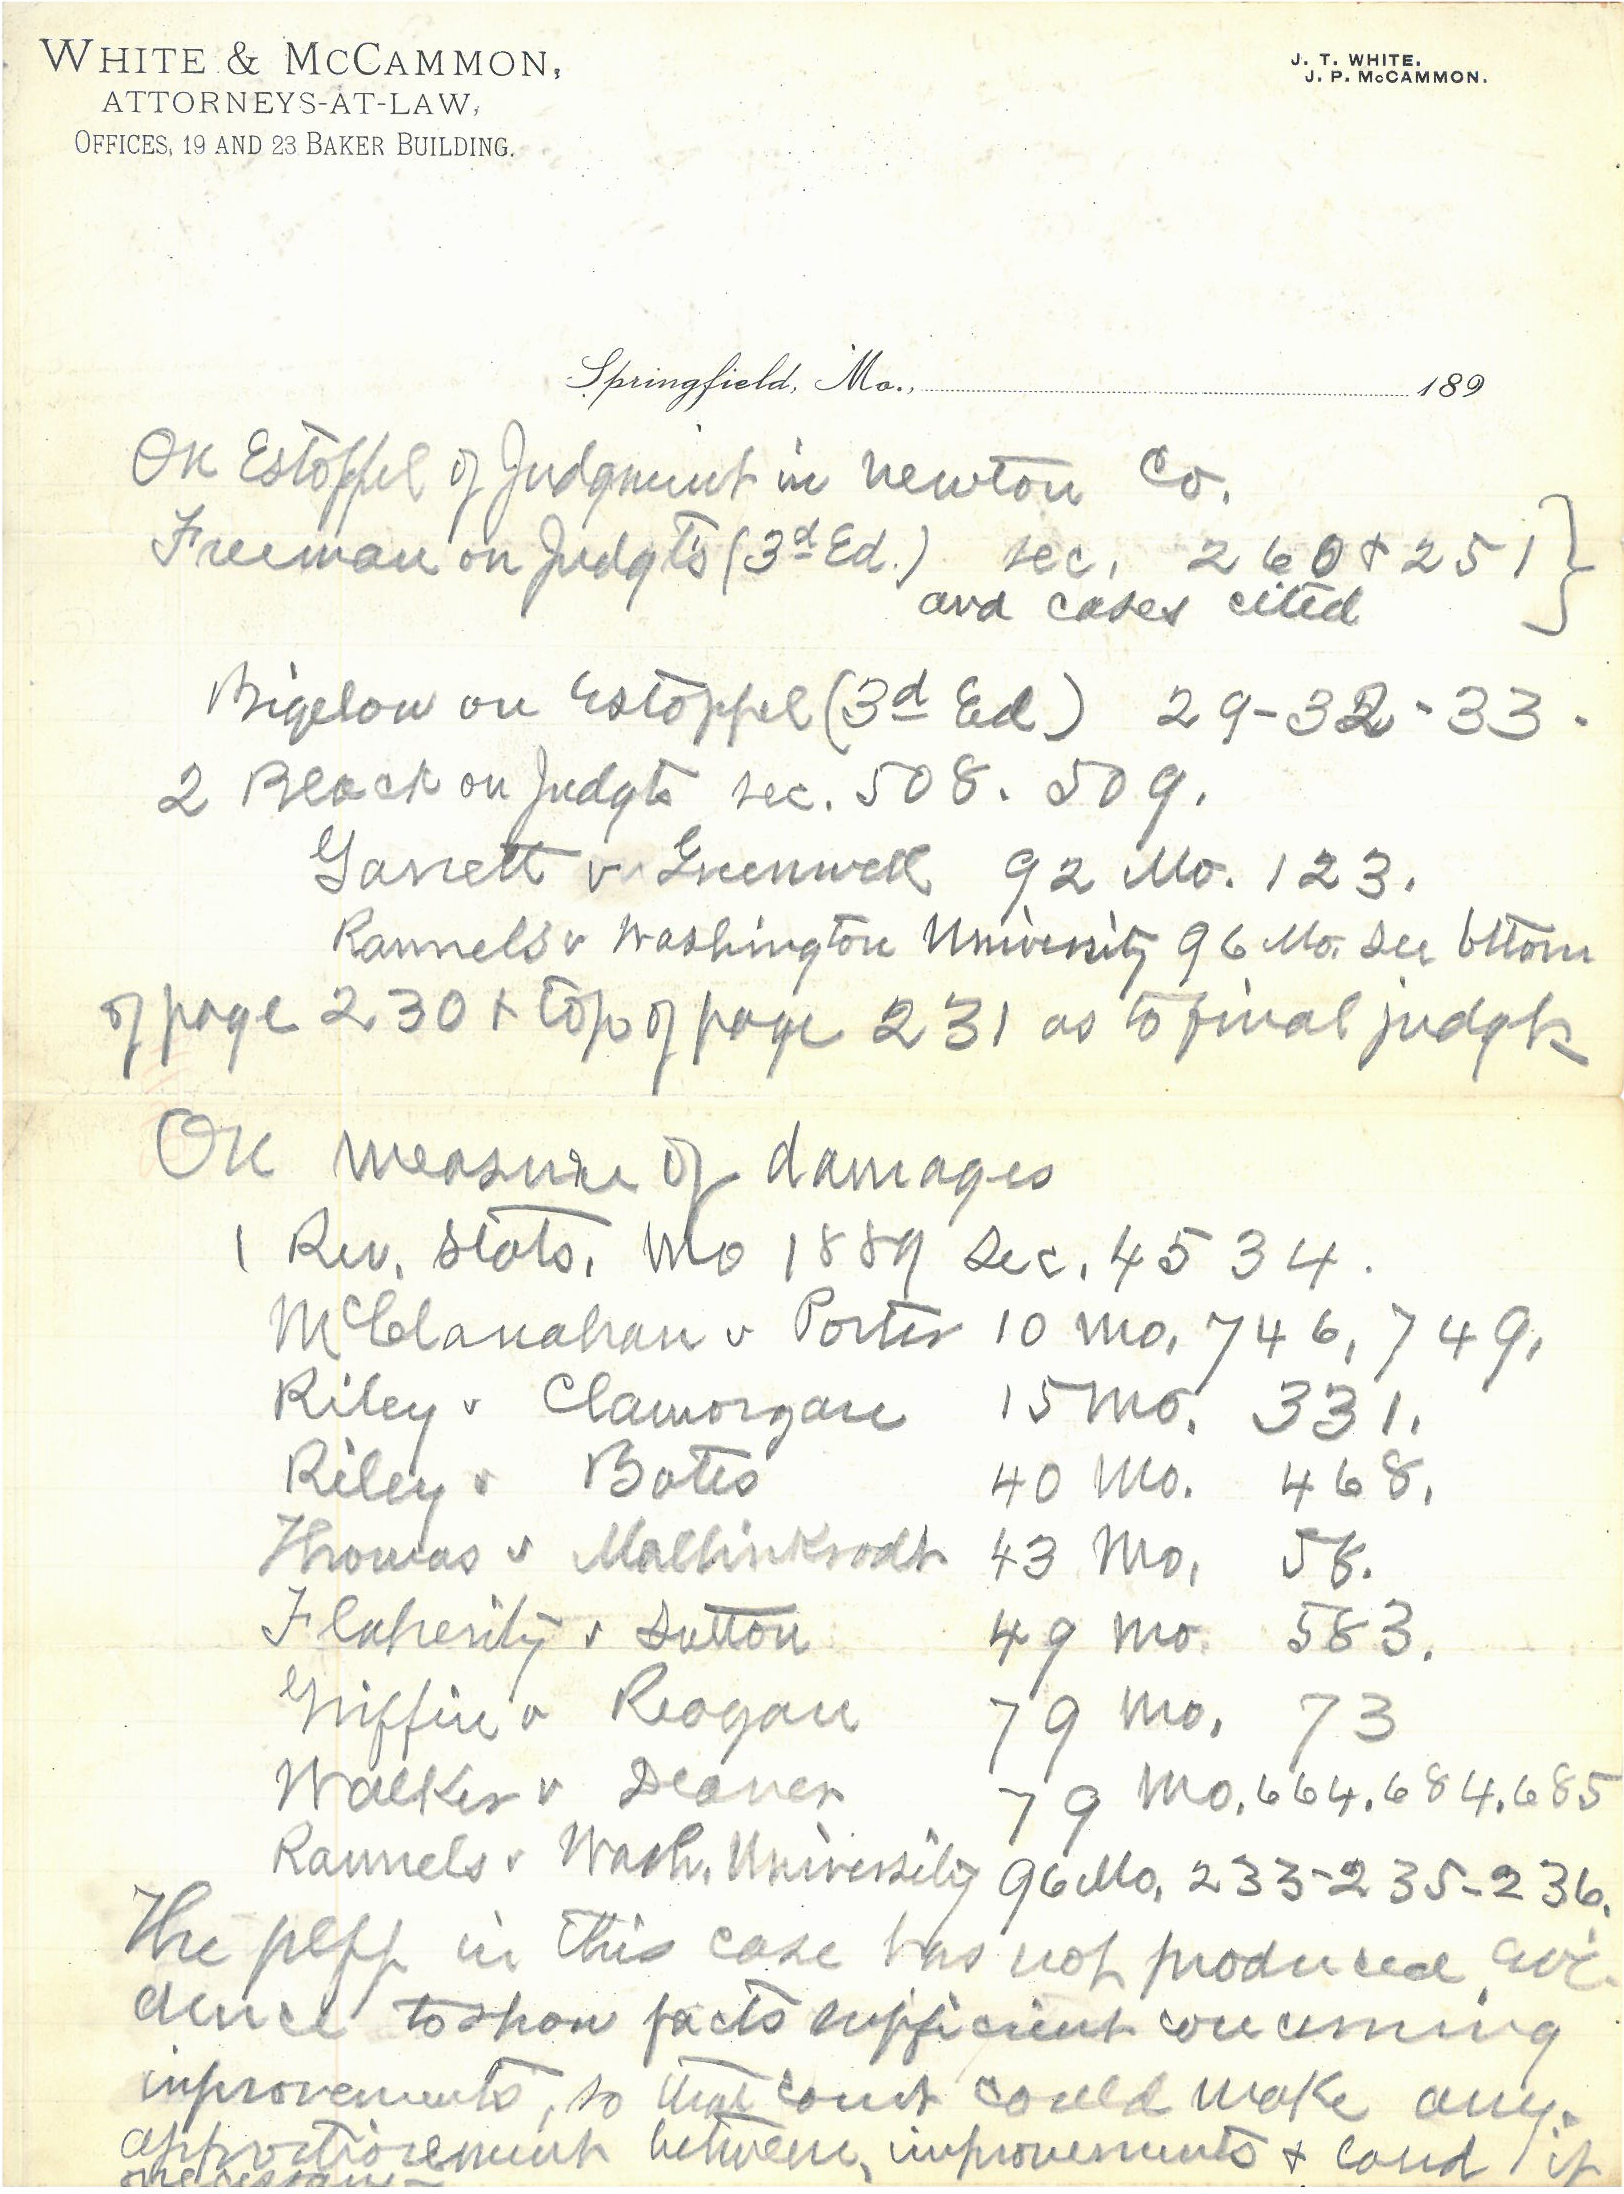 WHITE & McCAMMON,
ATTORNEYS-AT-LAW,
OFFICES, 19 AND 23 BAKER BUILDING.
J. T. WHITE.
J. P. McCAMMON.
Springfield, Mo., 189
On Estoppel of Judgment in Newton Co.
Freeman on Judgts (3d Ed.) sec. 260 & 251
and cases cited
Bigelow on Estoppel (3d Ed) 29-32-33.
2 Black on Judgts sec. 508. 509.
Garrett v Greenwell 92 Mo. 123.
Rannels v Washington University 96 Mo. see bttom
of page 230 & top of page 231 as to final judgts
On measure of damages
1 Rev. Stats. Mo 1889 Sec. 4534.
McClanahan v Porter 10 Mo. 746, 749.
Riley v Clamorgan 15 Mo. 331.
Riley v Bates 40 Mo. 468.
Thomas v Mallinkrodt 43 Mo. 58.
Flaherity v Sutton 49 Mo. 583.
Griffin v Reagan 79 Mo. 73
Walker v Deaver 79 Mo. 664. 684. 685
Rannels v Wash. University 96 Mo. 233-235-236.
The plff in this case has not produced evi-
dence to show facts sufficient concerning
improvements, so that court could make any
apportionment between improvements & land if
necessary